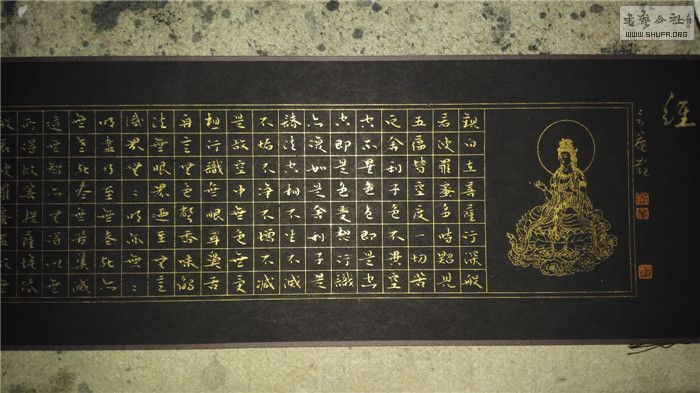 經
觀自在菩薩行深般
若波羅蜜多時照見
五蘊皆空度一切苦
厄舍利子色不異空
空不異色色即是空
空即是色受想行識
亦復如是舍利子是
諸法空相不生不滅
不垢不淨不增不減
是故空中無色無受
想行識無眼耳鼻舌
身意無色聲香味觸
法無眼界乃至無意
識界無〻明亦無〻
明盡乃至無老死亦
無老死盡無苦集滅
道無智亦無得以無
所得故菩提薩埵依
WWW.SHUFA.ORG